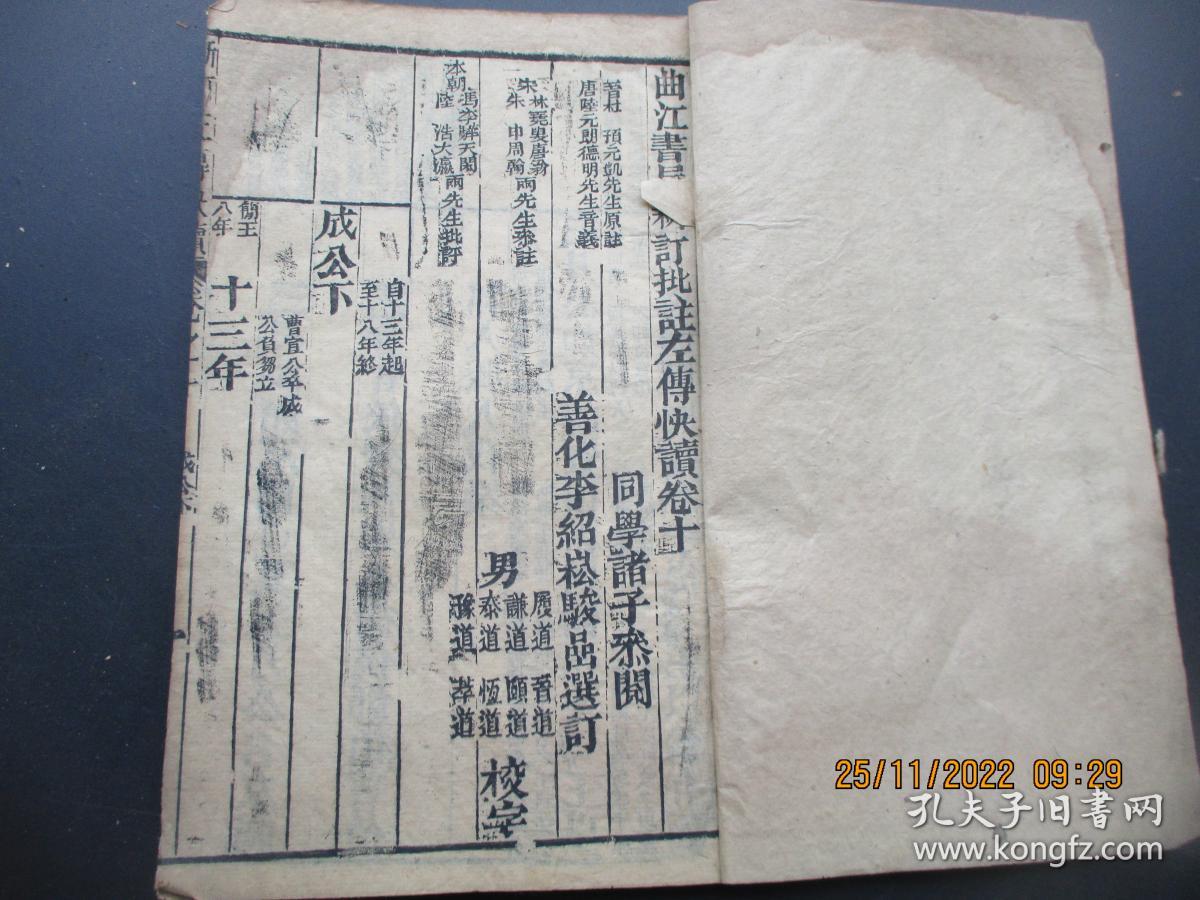 曲江書 訂批註左傳快讀卷十
晉杜 預元凱先生原註
唐陸元朗德明先生音義
同學諸子叅閱
善化李紹崧駿嵒選訂
宋林堯叟唐翁
朱 申周翰兩先生叅註
本朝馮李驊天閑
陸 浩大瀛兩先生批評
男
履道 晉道
謙道 頤道
泰道 恆道
豫道 萃道
校字
自十三年起
至十八年終
成公下
曹宣公卒成
公負芻立
簡王
八年
十三年
25/11/2022 09:29
孔夫子旧书网
www.kongfz.com